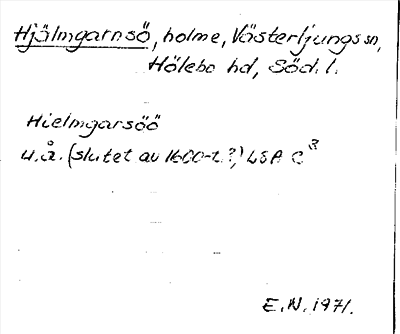 Hjälmgarnsö, holme, Västerljungs sn,
Hölebo hd, Söd. l.
Hielmgarsöö
u.å. (slutet av 1600-t.?), LSA C³
E.N. 1971.